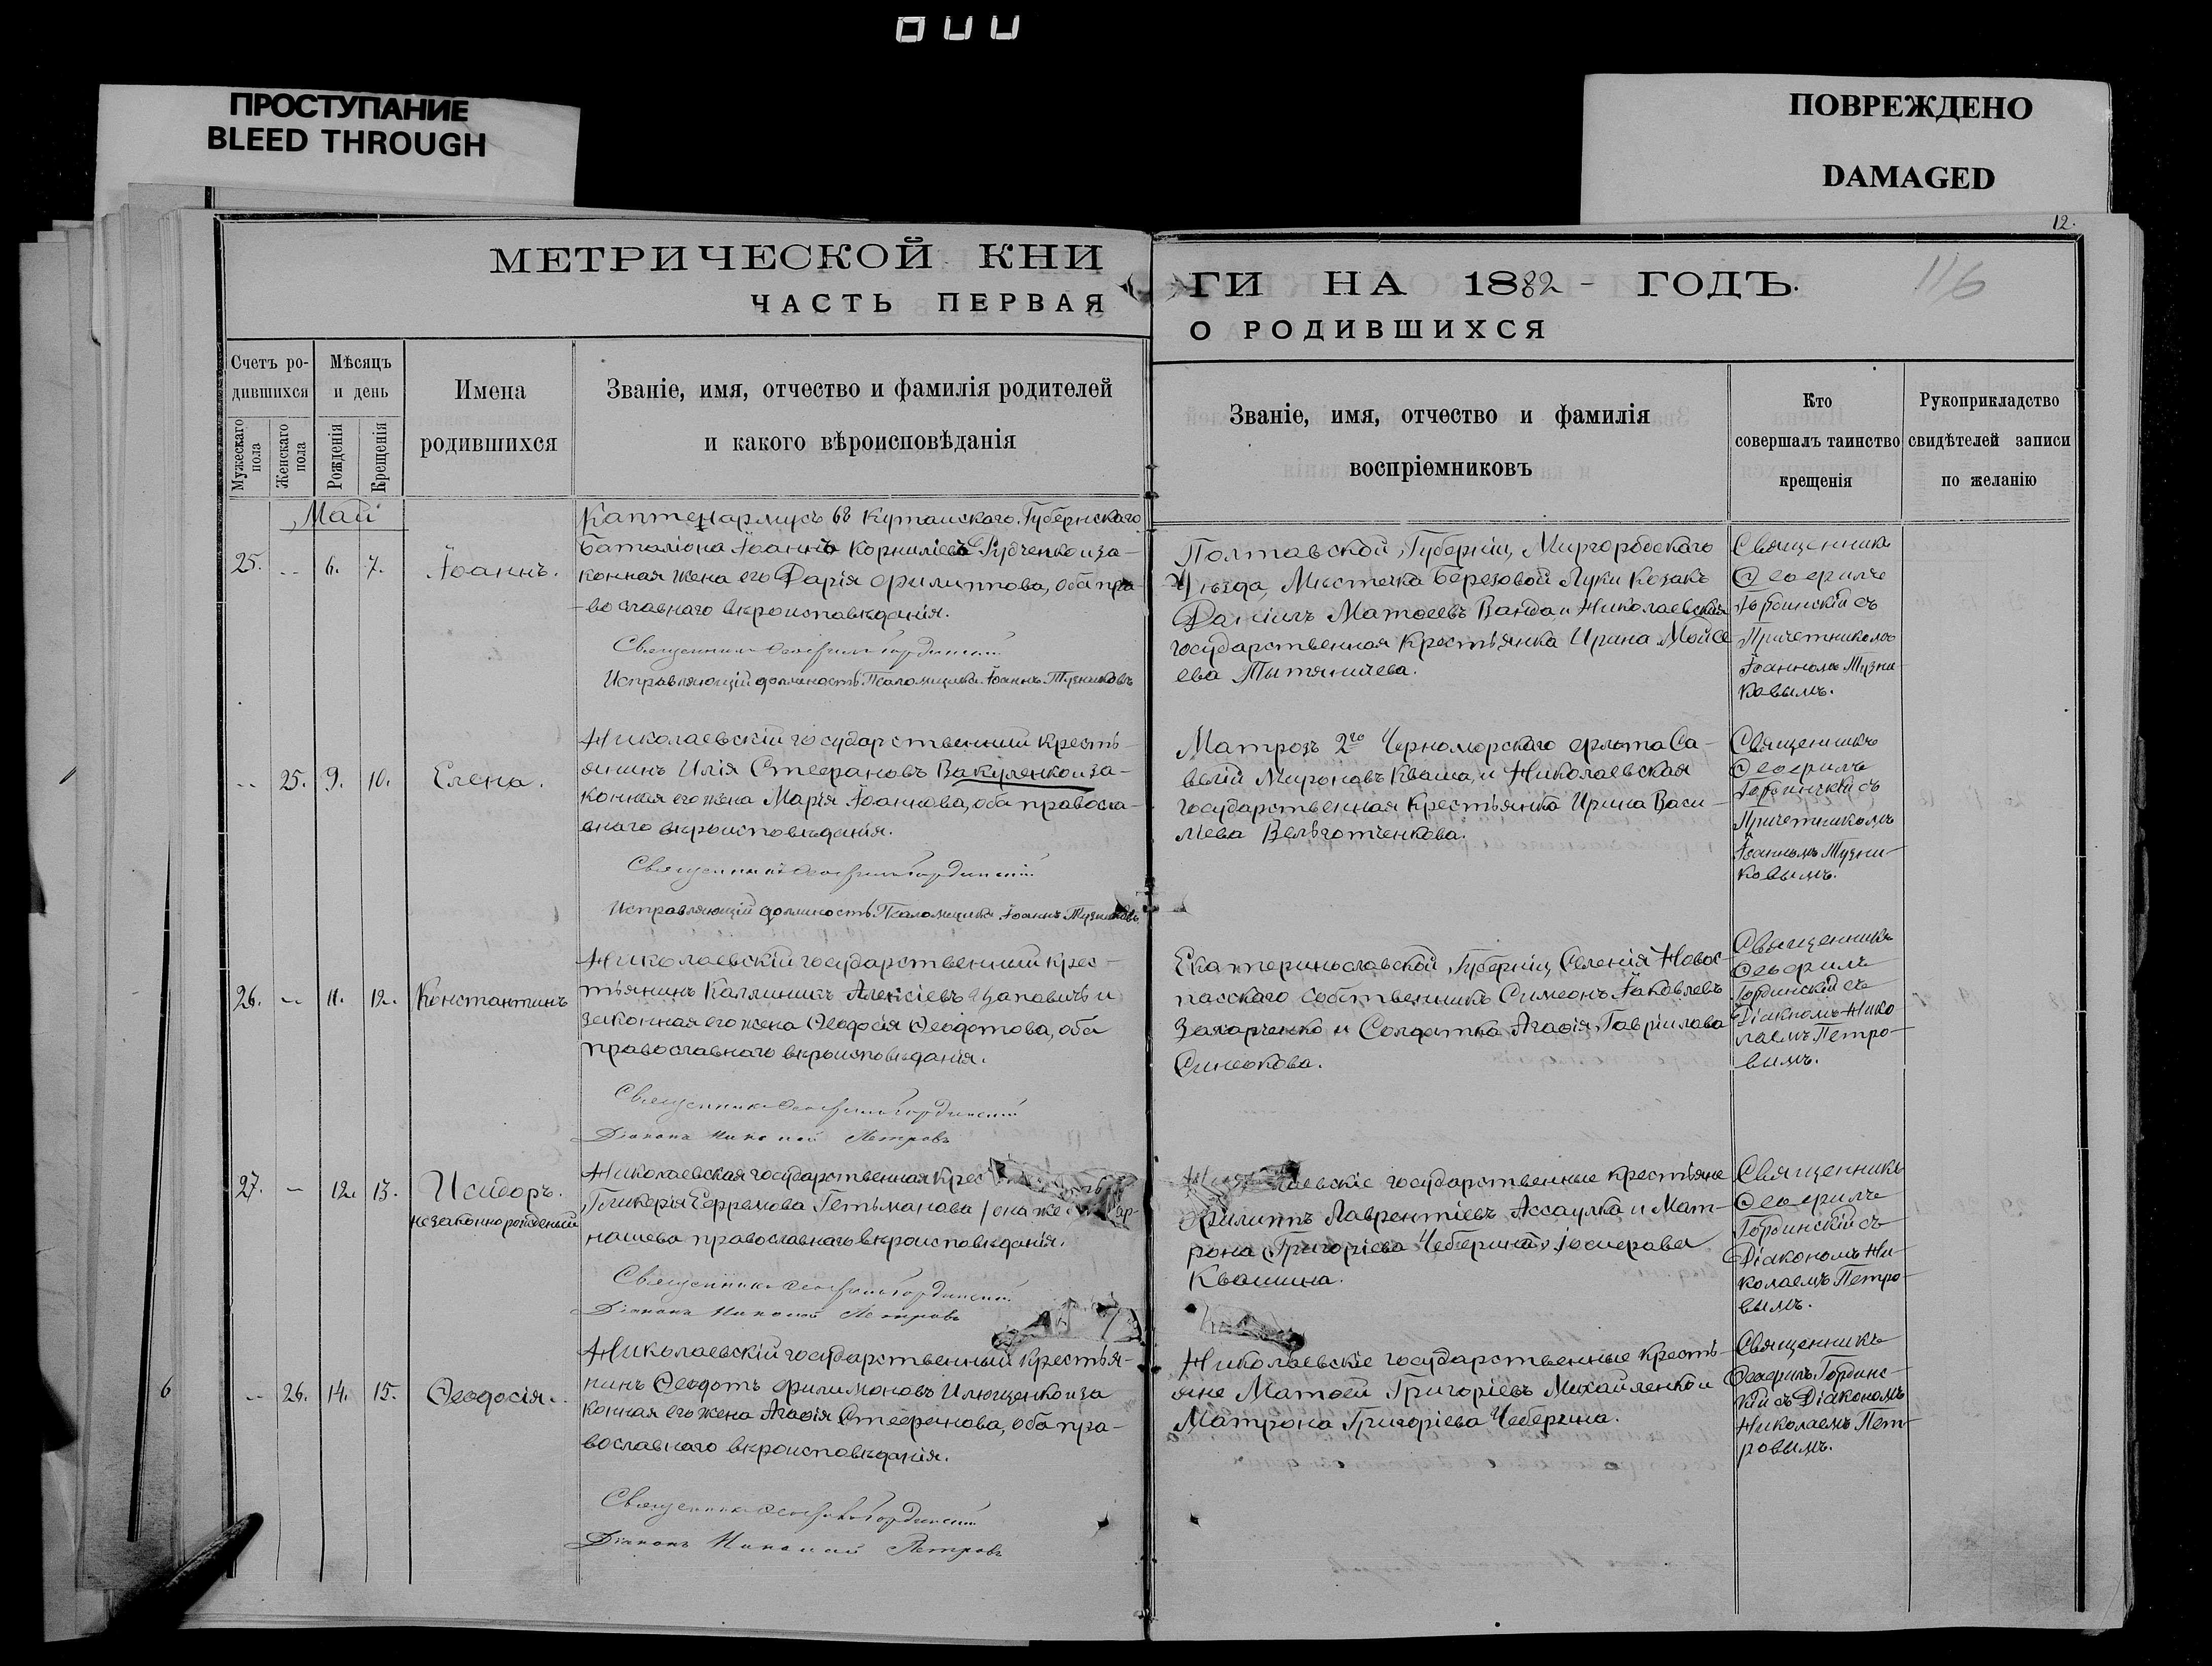 ПРОСТУПАНИЕ
BLEED THROUGH
ПОВРЕЖДЕНО
DAMAGED
12.
116
МЕТРИЧЕСКОЙ КНИ
ГИ НА 1882 - ГОДЪ.
ЧАСТЬ ПЕРВАЯ
О РОДИВШИХСЯ
Счетъ ро-
дившихся
Мужескаго пола
Женскаго пола
Мѣсяцъ
и день
Рожденія
Крещенія
Имена
родившихся
Званіе, имя, отчество и фамилія родителей
и какого вѣроисповѣданія
Званіе, имя, отчество и фамилія
воспріемниковъ
Кто
совершалъ таинство
крещенія
Рукоприкладство
свидѣтелей записи
по желанію
Май
25. -- 6. 7. Іоаннъ.
Каптенармусъ 68 Кутаискаго Губернскаго
Баталіона Іоаннъ Корниліевъ иза-
конная жена его Дарія Филиппова, оба пра-
вославнаго вѣроисповѣданія.
Священникъ Ѳеофилъ Гординскій
Исправляющій должность Псаломщика Іоаннъ Тузниковъ
Полтавской Губерніи, Миргородскаго
Уѣзда, Мѣстечка Березовой Луки Козакъ
Даніилъ Матѳеевъ Ванда и Николаевская
государственная Крестьянка Ирина Мойсе
ева
Священникъ
Ѳеофилъ
Гординскій съ
Причетникомъ
Іоанномъ Тузни-
ковымъ.
-- 25. 9. 10. Елена.
Николаевскій государственный кресть-
янинъ Илія Стефановъ Вакуленко иза-
конная его жена Марія Іоаннова, оба правосла-
внаго вѣроисповѣданія.
Священникъ Ѳеофилъ Гординскій
Исправляющій должность Псаломщика Іоаннъ Тузниковъ
Матрозъ 2го Черноморскаго флота Са-
велій Мироновъ Кваша, и Николаевская
государственная Крестьянка Ирина Васи-
лева
Священникъ
Ѳеофилъ
Гординскій съ
Причетникомъ
Іоанномъ Тузни-
ковымъ.
26. -- 11. 12. Константинъ
Николаевскій государственный крес-
тьянинъ Каллиникъ Алексіевъ и
законная его жена Ѳеодосія Ѳеодотова, оба
православнаго вѣроисповѣданія.
Священникъ Ѳеофилъ Гординскій
Діаконъ Николай Петровъ
Екатеринославской Губерніи, Селенія Новос-
пасскаго Собственникъ Симеонъ Іаковлевъ
Захарченко и Солдатка Агафія Гавріилова
Священникъ
Ѳеофилъ
Гординскій съ
Діакономъ Нико-
лаемъ Петро-
вымъ.
27. -- 12. 13. Исидоръ.
незаконнорожденый
Николаевская государственная крес
Гликерія Ефремова Гетьманова /она же
нашева православнаго вѣроисповѣданія.
Священникъ Ѳеофилъ Гординскій
Діаконъ Николай Петровъ
лаевскіе государственные крестьяне
Филиппъ Лаврентіевъ Ассаулка и Мат-
рона Григоріева
Квашина.
Священникъ
Ѳеофилъ
Гординскій съ
Діакономъ Ни-
колаемъ Петро-
вымъ.
6
-- 26. 14. 15. Ѳеодосія.
Николаевскій государственный крестья-
нинъ Ѳеодотъ Филимоновъ Илющенко иза
конная его жена Агафія Стефанова, оба пра-
вославнаго вѣроисповѣданія.
Священникъ Ѳеофилъ Гординскій
Діаконъ Николай Петровъ
Николаевскіе государственные кресть-
яне Матѳей Григоріевъ Михайленко и
Матрона Григоріева Чеберина.
Священникъ
Ѳеофилъ Гординс-
кій съ Діакономъ
Николаемъ Пет-
ровымъ.